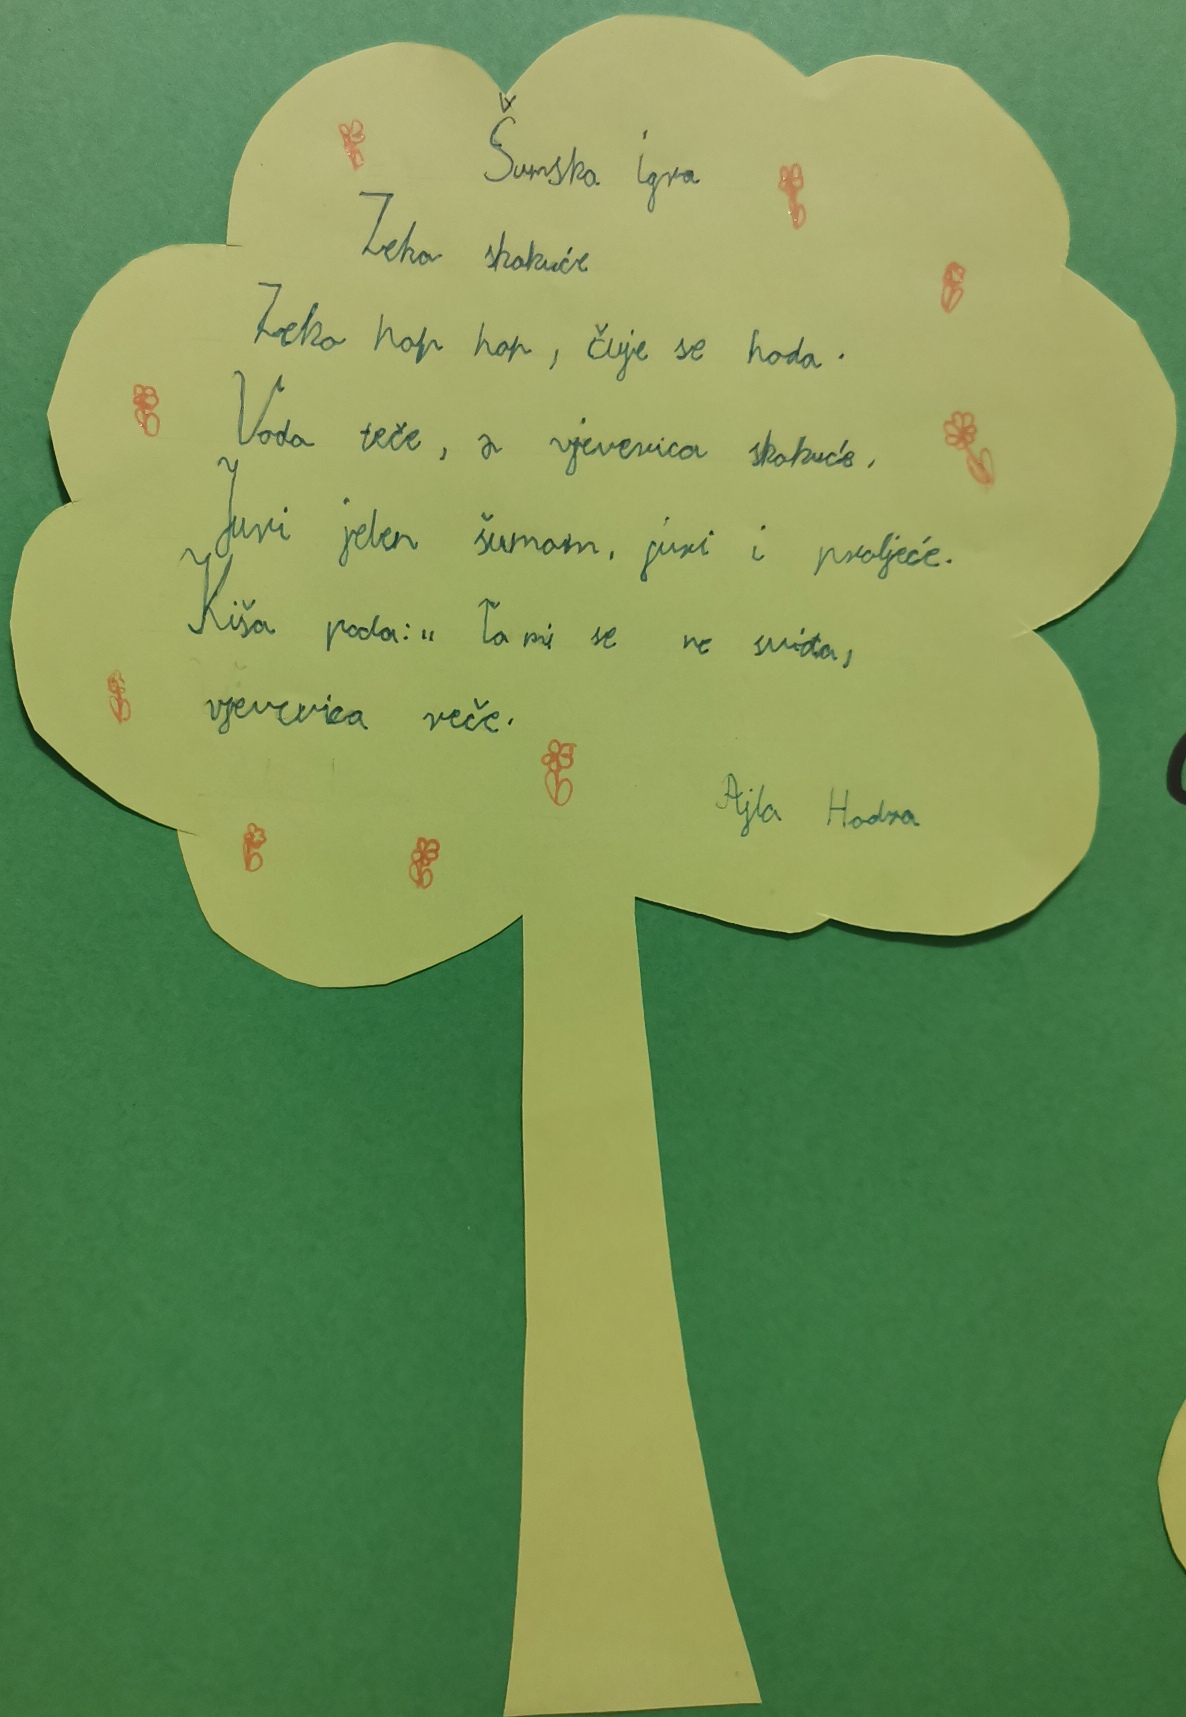 Šumska igra
Zeko skakuće
Zeko hop hop, čuje se hoda.
Voda teče, a vjeverica skakuće.
Juri jelen šumom, juri i proljeće.
Kiša pada: " Ta mi se ne sviđa,
vjeverica reče.
Ajla Hodža